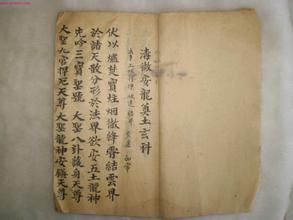 清微安龍奠土玄科
伏以爐焚寶炷烟徹絳霄結雲界
於諸天散分形於法界欲安五土龍神
先吟三寶聖號 大聖八卦護身天尊
大聖九宮捍厄天尊 大聖龍神安鎮天尊